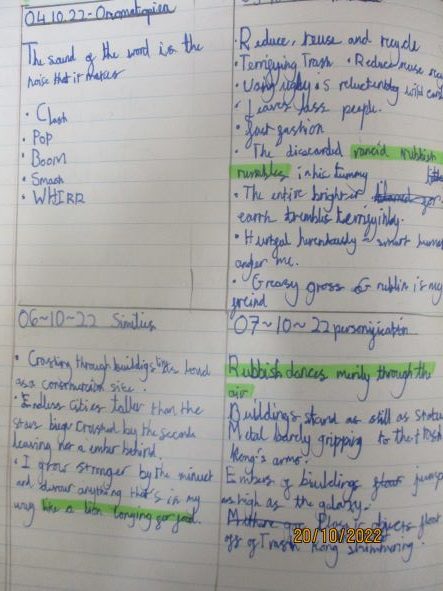 04.10.22 - Onomatopoeia
The sound of the word is the
noise that it makes
• Clash
• POP
• BOOM
• Smash
• WHIRR
• Reduce, reuse and recycle
• Terrifying Trash • Reduce reuse
• Using
• Leaves less people.
• fast fashion
• The discarded rancid rubbish
rumbles in his tummy
• The entire bright
earth trembles
• smart
under me.
• Greasy gross rubbish is my
freind
06~10~22 Similies
• Crashing through buildings loud
as a construction site.
• Endless Cities taller than the
stars being crushed by the seconds
leaving not a ember behind.
• I grow stronger by the minuet
and devour anything that's in my
way like a lion longing for food.
07~10~22 personification
Rubbish dances merrily through the
air
Buildings stand as still as
Metal barely gripping to the trash
kong's arms.
Embers of buildings
as high as the galaxy.
float
of Trash Kong
20/10/2022